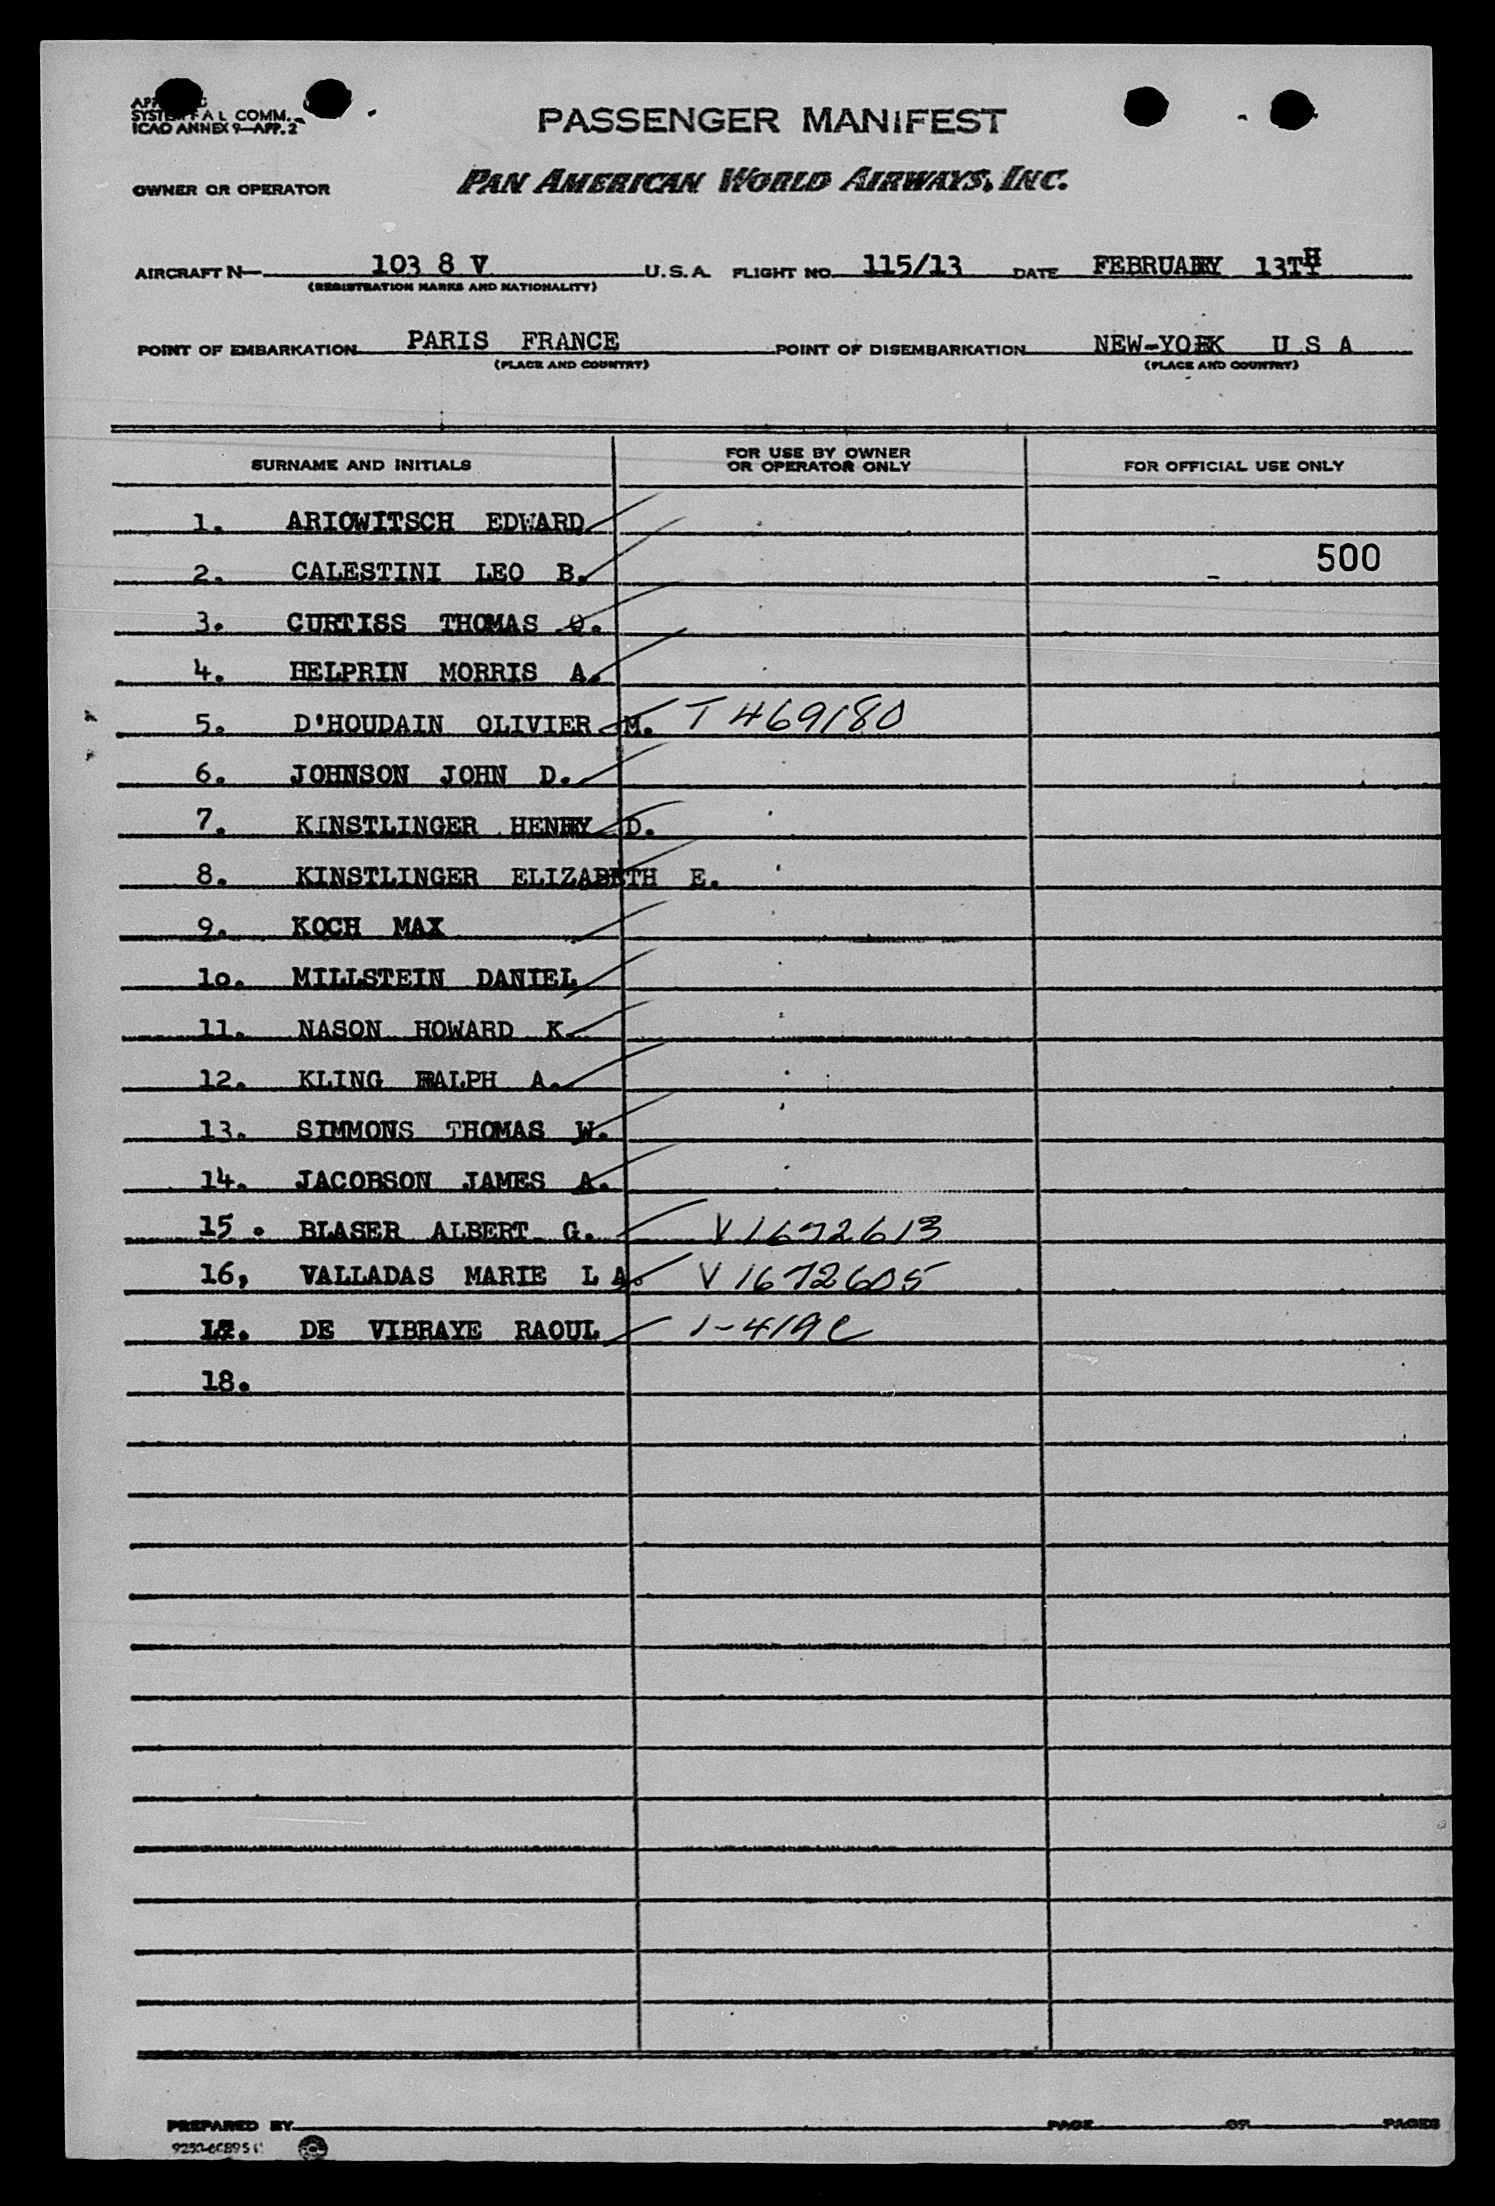 SYSTEM F A L COMM.
ICAO ANNEX 9—APP. 2
PASSENGER MANIFEST
OWNER OR OPERATOR PAN AMERICAN WORLD AIRWAYS, INC.
AIRCRAFT N— 103 8 V U.S.A. FLIGHT NO. 115/13 DATE FEBRUARY 13TH
(REGISTRATION MARKS AND NATIONALITY)
POINT OF EMBARKATION PARIS FRANCE POINT OF DISEMBARKATION NEW-YORK U S A
(PLACE AND COUNTRY) (PLACE AND COUNTRY)
SURNAME AND INITIALS FOR USE BY OWNER OR OPERATOR ONLY FOR OFFICIAL USE ONLY
1. ARIOWITSCH EDWARD
2. CALESTINI LEO B. 500
3. CURTISS THOMAS Q.
4. HELPRIN MORRIS A.
5. D'HOUDAIN OLIVIER M. T 469180
6. JOHNSON JOHN D.
7. KINSTLINGER HENRY D.
8. KINSTLINGER ELIZABETH E.
9. KOCH MAX
10. MILLSTEIN DANIEL
11. NASON HOWARD K.
12. KLING RALPH A.
13. SIMMONS THOMAS W.
14. JACOBSON JAMES A.
15. BLASER ALBERT G. V 1672613
16, VALLADAS MARIE L A. V 1672605
17. DE VIBRAYE RAOUL 1-419C
18.
PREPARED BY PAGE OF PAGES